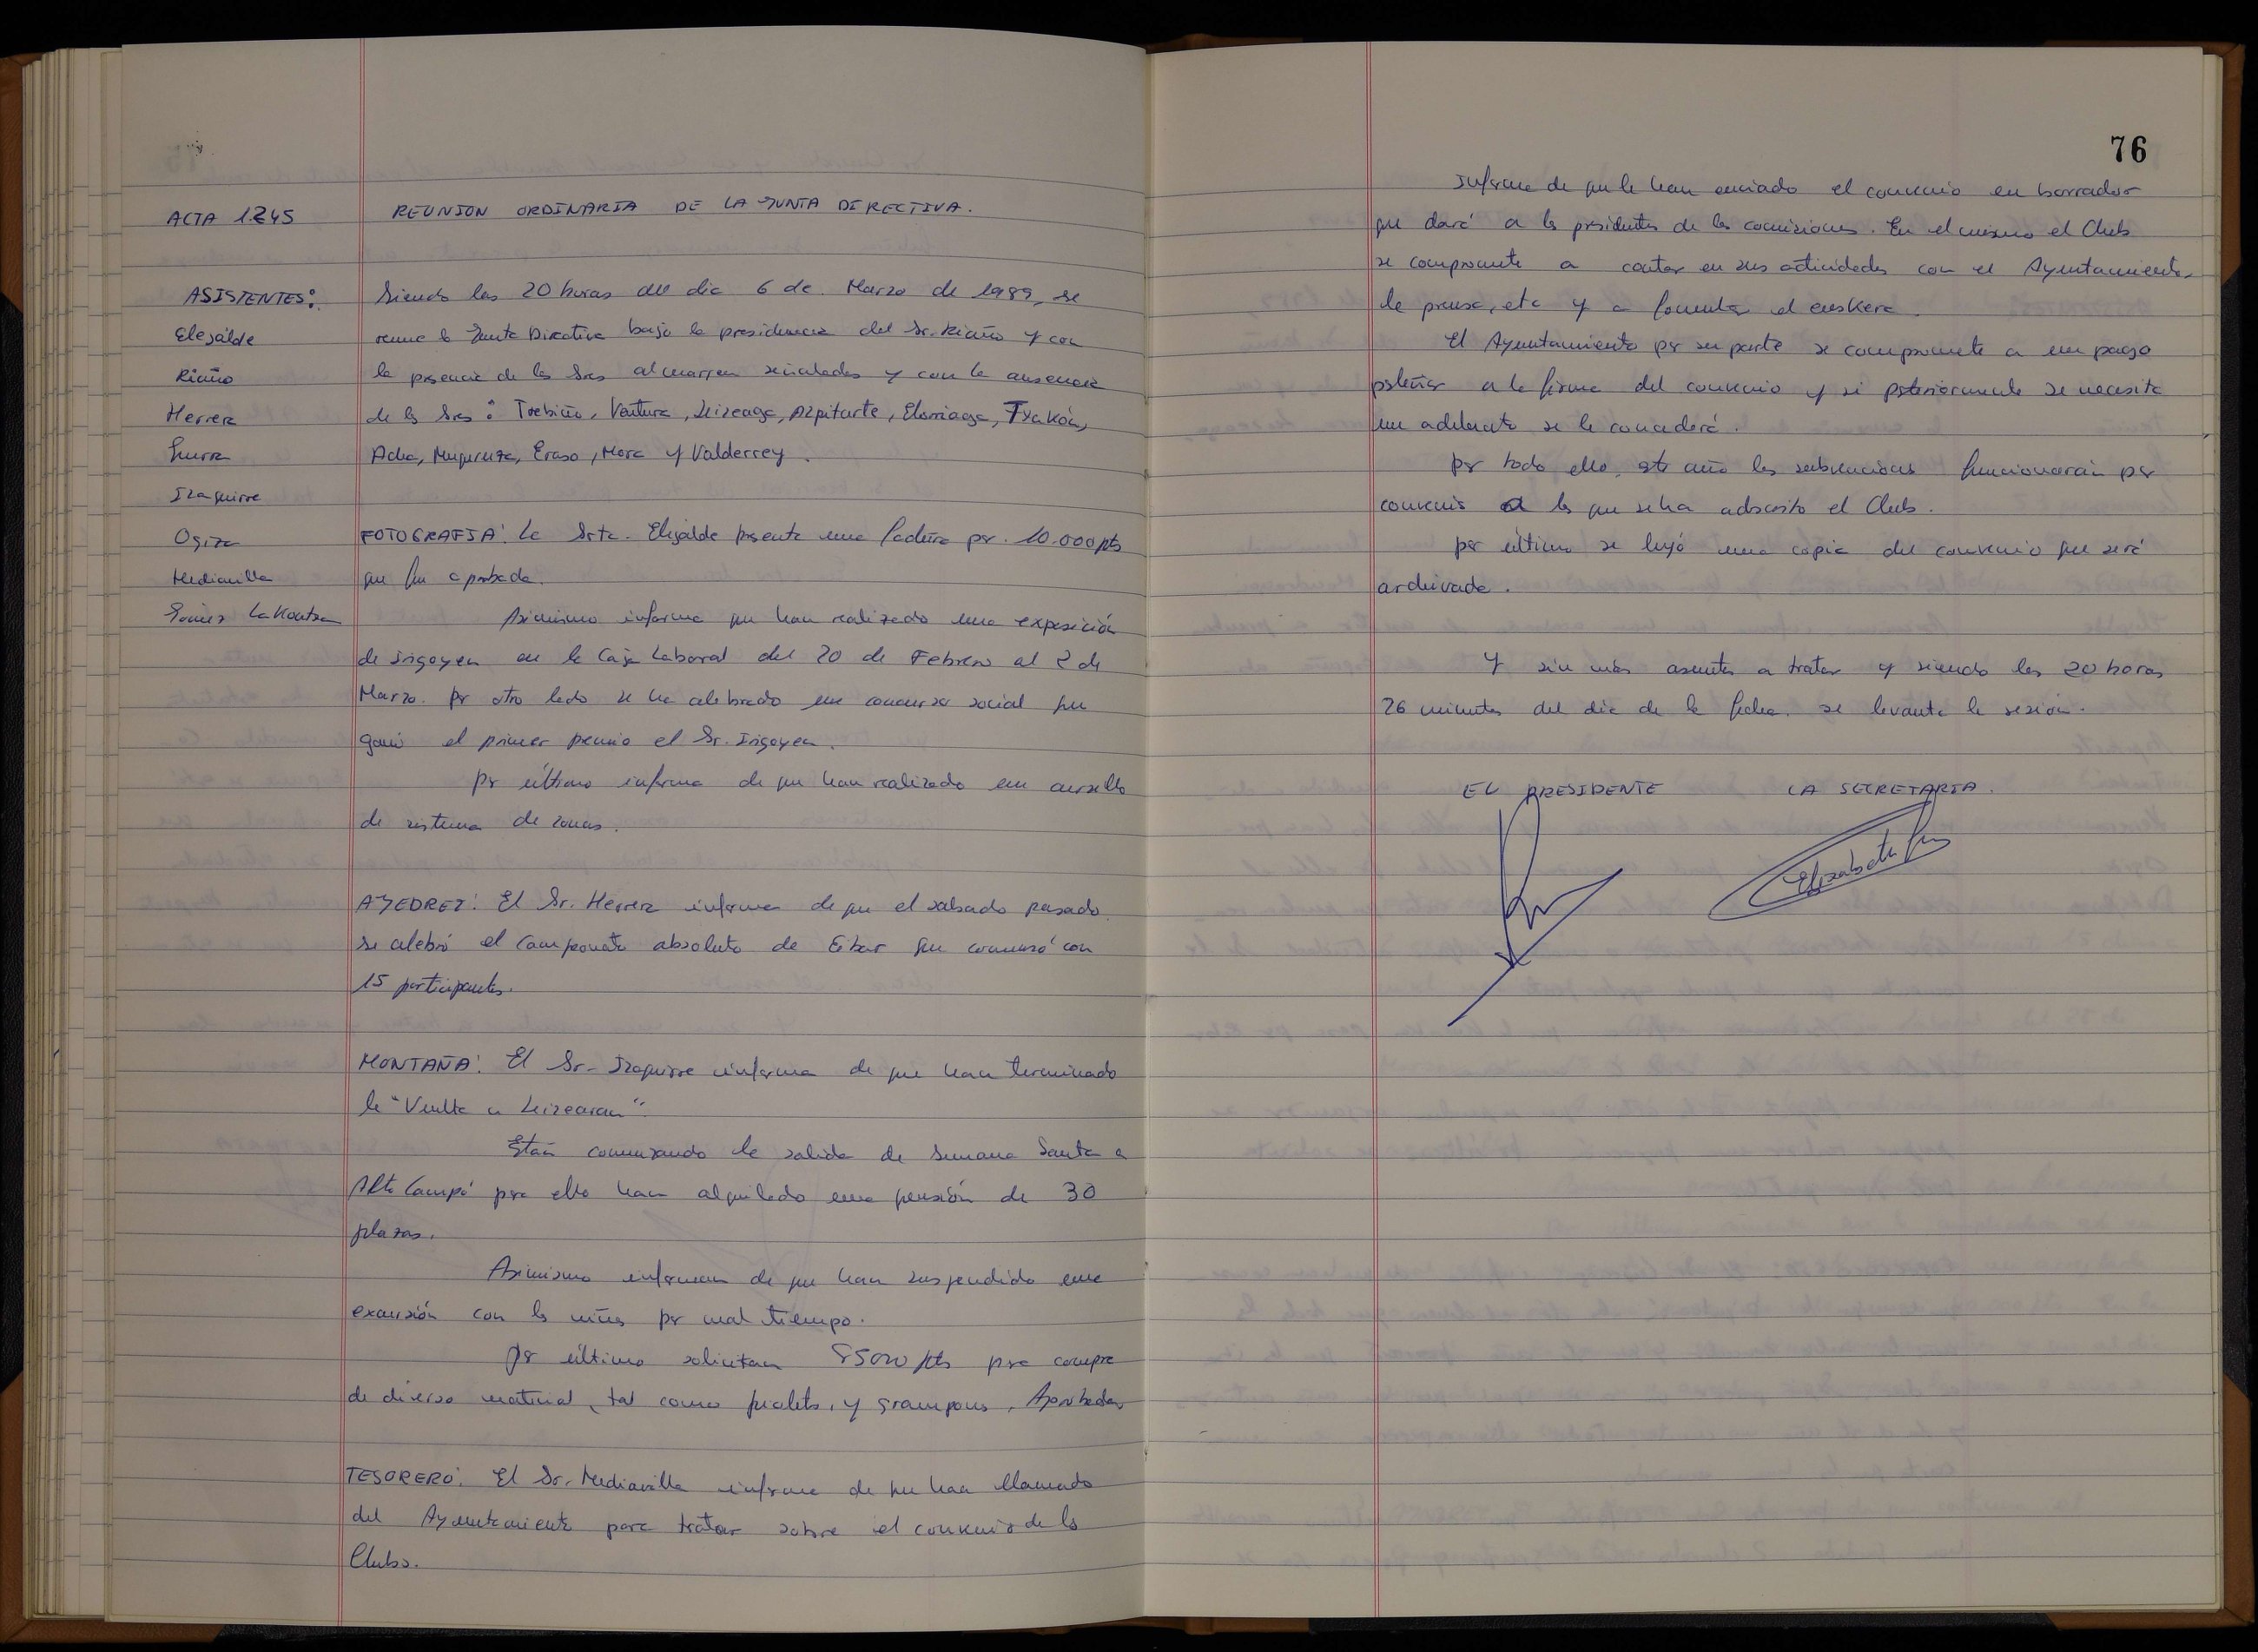 ACTA 1245
REUNION ORDINARIA DE LA JUNTA DIRECTIVA.
ASISTENTES:
Elejalde
Riaño
Herrera
Gurra
Izaguirre
Ogiza
Mediavilla
Gomez Lakontsa
Siendo las 20 horas del dia 6 de Marzo de 1989, se
reune la Junta Directiva bajo la presidencia del Sr. Riaño y con
la presencia de los Sres al margen señalados y con la ausencia
de los Sres: Trebiño, Ventura, Leizeaga, Azpitarte, Elorriaga, Txakón,
Acha, Muguruza, Eraso, Mora y Valderrey.
FOTOGRAFIA: La Srta. Elejalde presenta una factura por 10.000 pts
que fue aprobada.
Asimismo informa que han realizado una exposición
de Irigoyen en la Caja Laboral del 20 de Febrero al 2 de
Marzo. Por otro lado se ha celebrado un concurso social que
ganó el primer premio el Sr. Irigoyen.
Por último informa de que han realizado un cursillo
de sistema de zonas.
AJEDREZ: El Sr. Herrera informa de que el sabado pasado
se celebró el Campeonato absoluto de Eibar que comenzó con
15 participantes.
MONTAÑA: El Sr. Izaguirre informa de que han terminado
la "Vuelta a Leizearan".
Están comenzando la salida de Semana Santa a
Alto Campó para ello han alquilado una pensión de 30
plazas.
Asimismo informan de que han suspendido una
excursión con los niños por mal tiempo.
Por último solicitan 85000 pts para compra
de diverso material, tal como piolets, y grampons, Aprobadas
TESORERO: El Sr. Mediavilla informa de que han llamado
del Ayuntamiento para tratar sobre el convenio de los
Clubs.
76
Informa de que le han enviado el convenio en borrador
que dará a los presidentes de las comisiones. En el mismo el Club
se compromete a contar en sus actividades con el Ayuntamiento,
la prensa, etc y a fomentar el euskera.
El Ayuntamiento por su parte se compromete a un pago
posterior a la firma del convenio y si posteriormente se necesita
un adelanto se le concederá.
Por todo ello, este año las subvenciones funcionarán por
convenio a los que se ha adscrito el Club.
Por último se leyó una copia del convenio que será
archivada.
Y sin más asuntos a tratar y siendo las 20 horas
26 minutos del dia de la fecha, se levanta la sesión.
EL PRESIDENTE LA SECRETARIA.